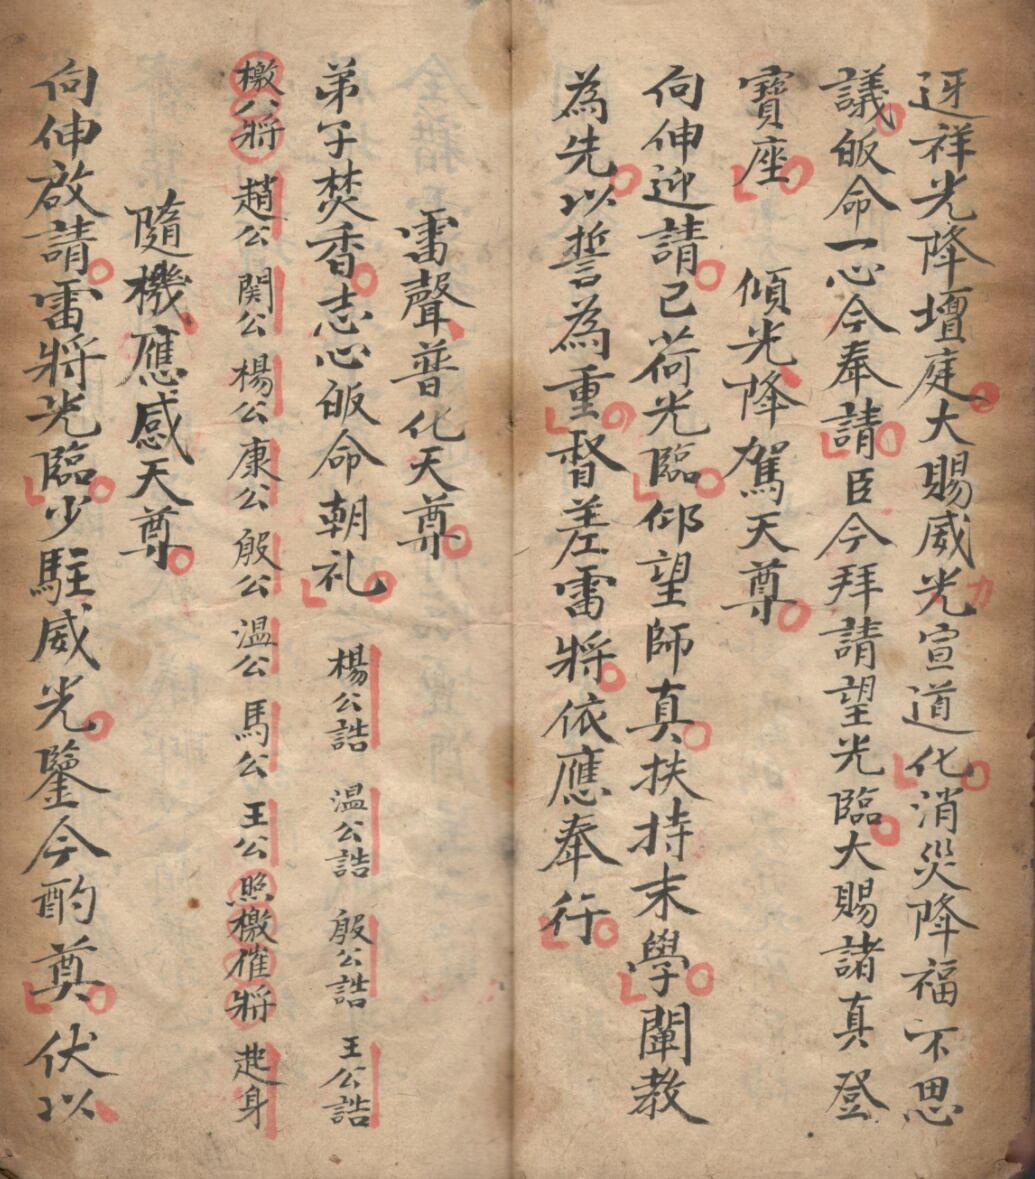 迓祥光降壇庭大賜威光宣道化消災降福不思
議皈命一心今奉請臣今拜請望光臨大賜諸真登
寶座 傾光降駕天尊
向伸迎請已荷光臨仰望師真扶持末學闡教
為先以誓為重督差雷將依應奉行
雷聲普化天尊
弟子焚香志心皈命朝礼 楊公誥 溫公誥 殷公誥 王公誥
檄公將 趙公 関公 楊公 康公 殷公 温公 馬公 王公 照檄催將 起身
隨機應感天尊
向伸啟請雷將光臨少駐威光鑒今酌奠伏以